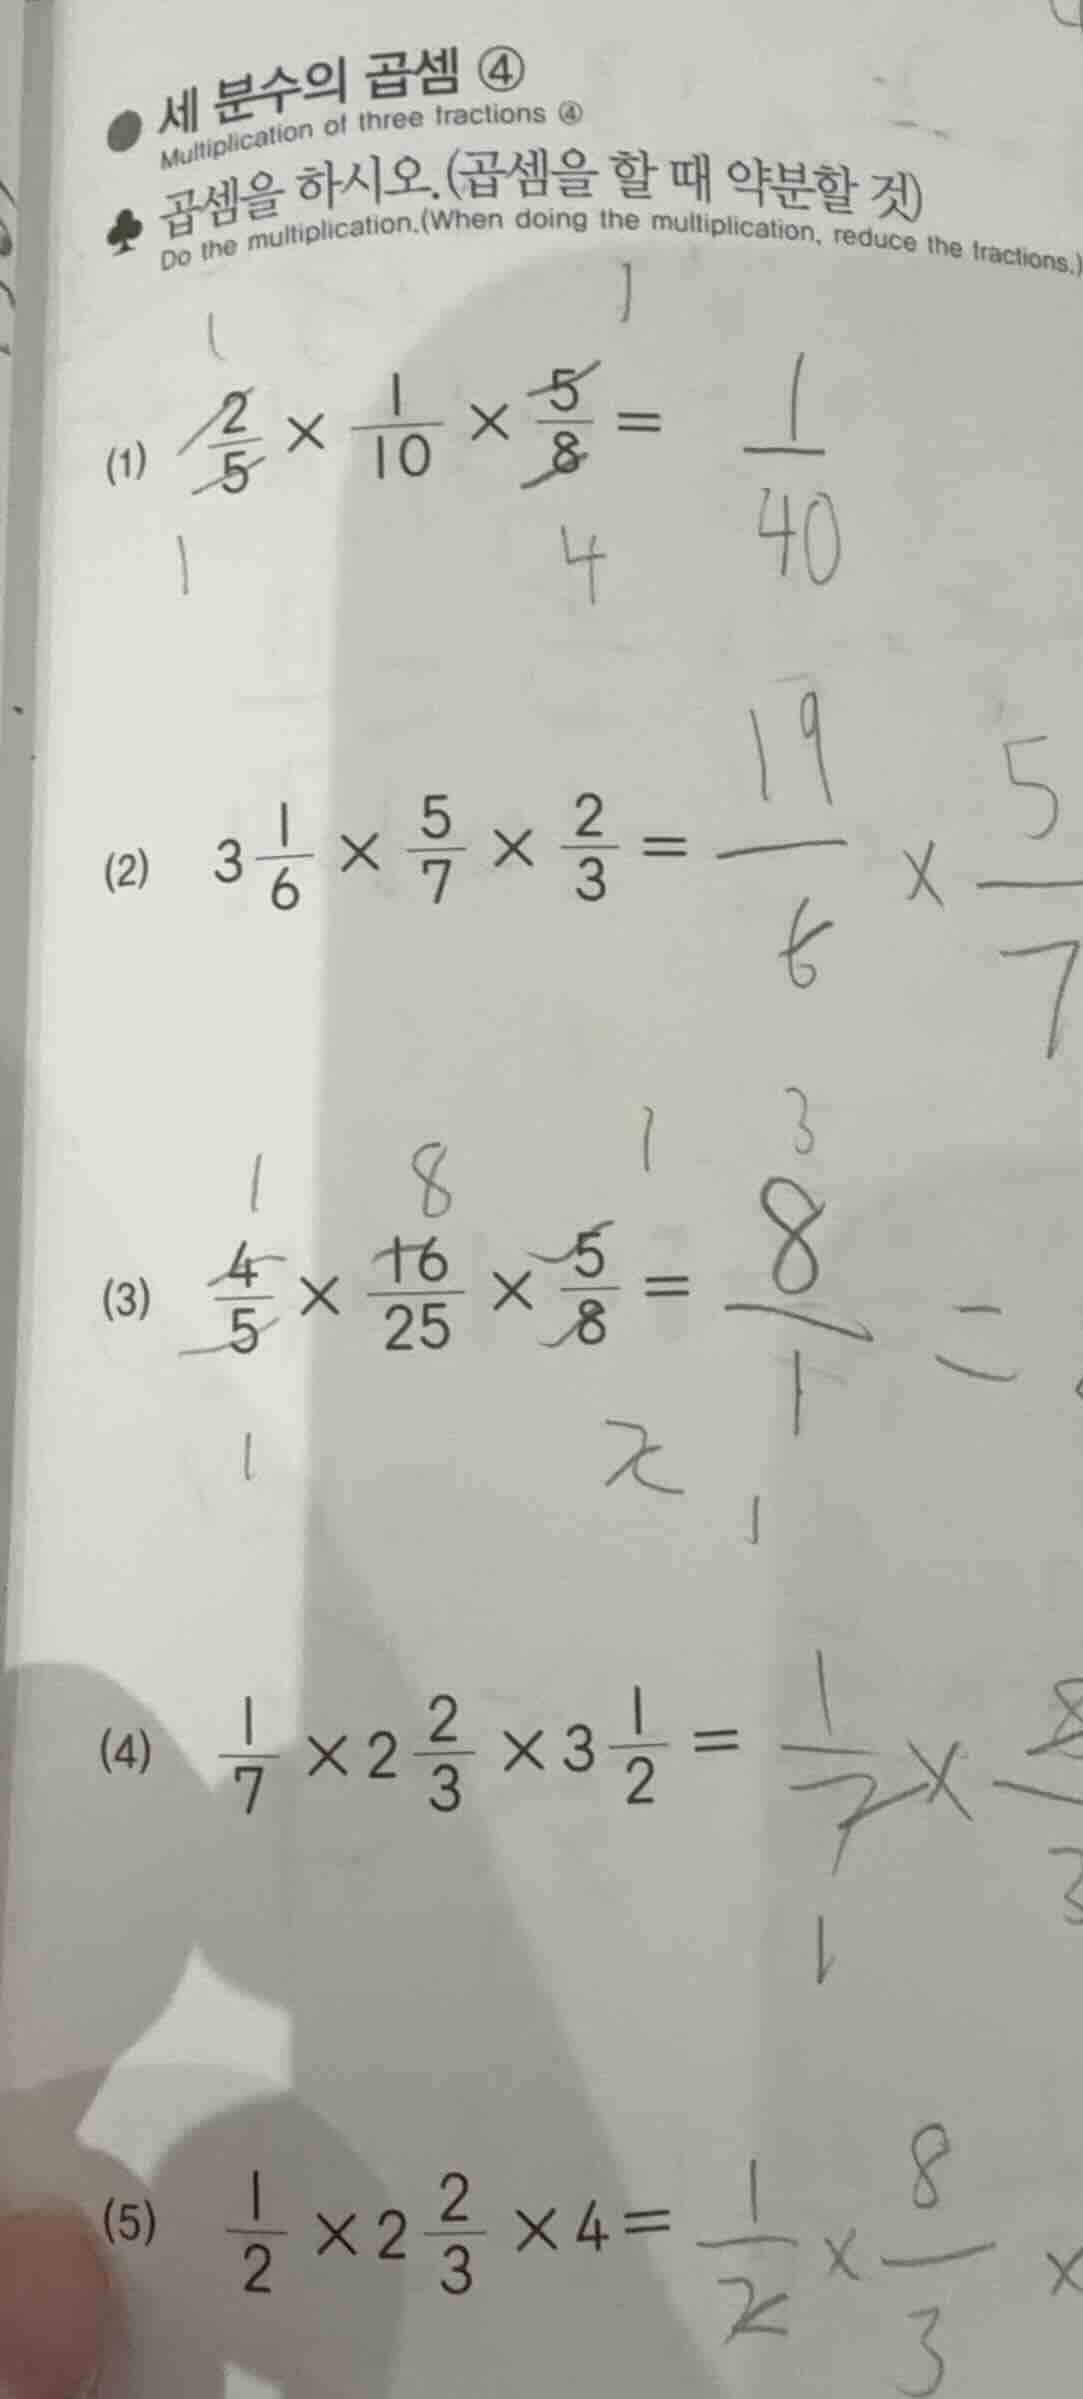 세 분수의 곱셈 ④
Multiplication of three fractions ④
곱셈을 하시오.(곱셈을 할 때 약분할 것)
Do the multiplication.(When doing the multiplication, reduce the fractions.)
1 1
(1) 2/5 × 1/10 × 5/8 = 1/40
1 4
(2) 3 1/6 × 5/7 × 2/3 = 19/6 × 5/7
1 8 1 3
(3) 4/5 × 16/25 × 5/8 = 8/1 =
1 2 1
(4) 1/7 × 2 2/3 × 3 1/2 = 1/7 × 8/3
1
(5) 1/2 × 2 2/3 × 4 = 1/2 × 8/3 ×